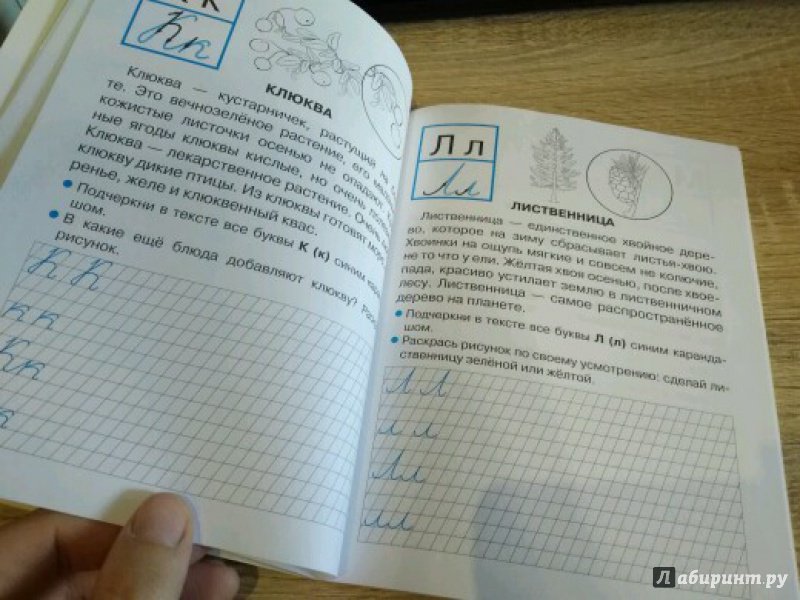 К к
Кк
КЛЮКВА
Клюква — кустарничек, растущий на
те. Это вечнозелёное растение, его
кожистые листочки осенью не опадают.
ные ягоды клюквы кислые, но очень
Клюква — лекарственное растение. Очень
клюкву дикие птицы. Из клюквы готовят
ренье, желе и клюквенный квас.
• Подчеркни в тексте все буквы К (к) синим
шом.
• В какие ещё блюда добавляют клюкву?
рисунок.
К К
к к
Кк
к
Л л
Лл
ЛИСТВЕННИЦА
Лиственница — единственное хвойное дере-
во, которое на зиму сбрасывает листья-хвою.
Хвоинки на ощупь мягкие и совсем не колючие,
не то что у ели. Жёлтая хвоя осенью, после хвое-
пада, красиво устилает землю в лиственничном
лесу. Лиственница — самое распространённое
дерево на планете.
• Подчеркни в тексте все буквы Л (л) синим каранда-
шом.
• Раскрась рисунок по своему усмотрению: сделай ли-
ственницу зелёной или жёлтой.
Л Л
л л
Лл
лл
Лабиринт.ру